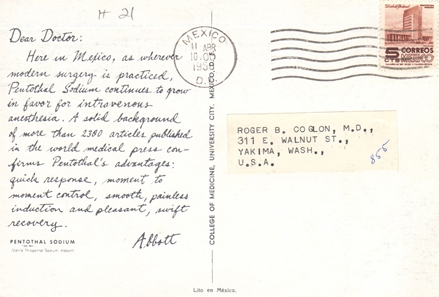 H 21
Dear Doctor:
Here in Mexico, as wherever
modern surgery is practiced,
Pentothal Sodium continues to grow
in favor for intravenous
anesthesia. A solid background
of more than 2380 articles published
in the world medical press con-
firms Pentothal's advantages:
quick response, moment to
moment control, smooth, painless
induction and pleasant, swift
recovery.
Abbott
PENTOTHAL SODIUM
COLLEGE OF MEDICINE, UNIVERSITY CITY, MEXICO, D.F.
MEXICO
11 APR
1958
D.F.
5
CTS
CORREOS
MEXICO
ROGER B. COGLON, M.D.,
311 E. WALNUT ST.,
YAKIMA, WASH.,
U.S.A.
855
Lito en México.